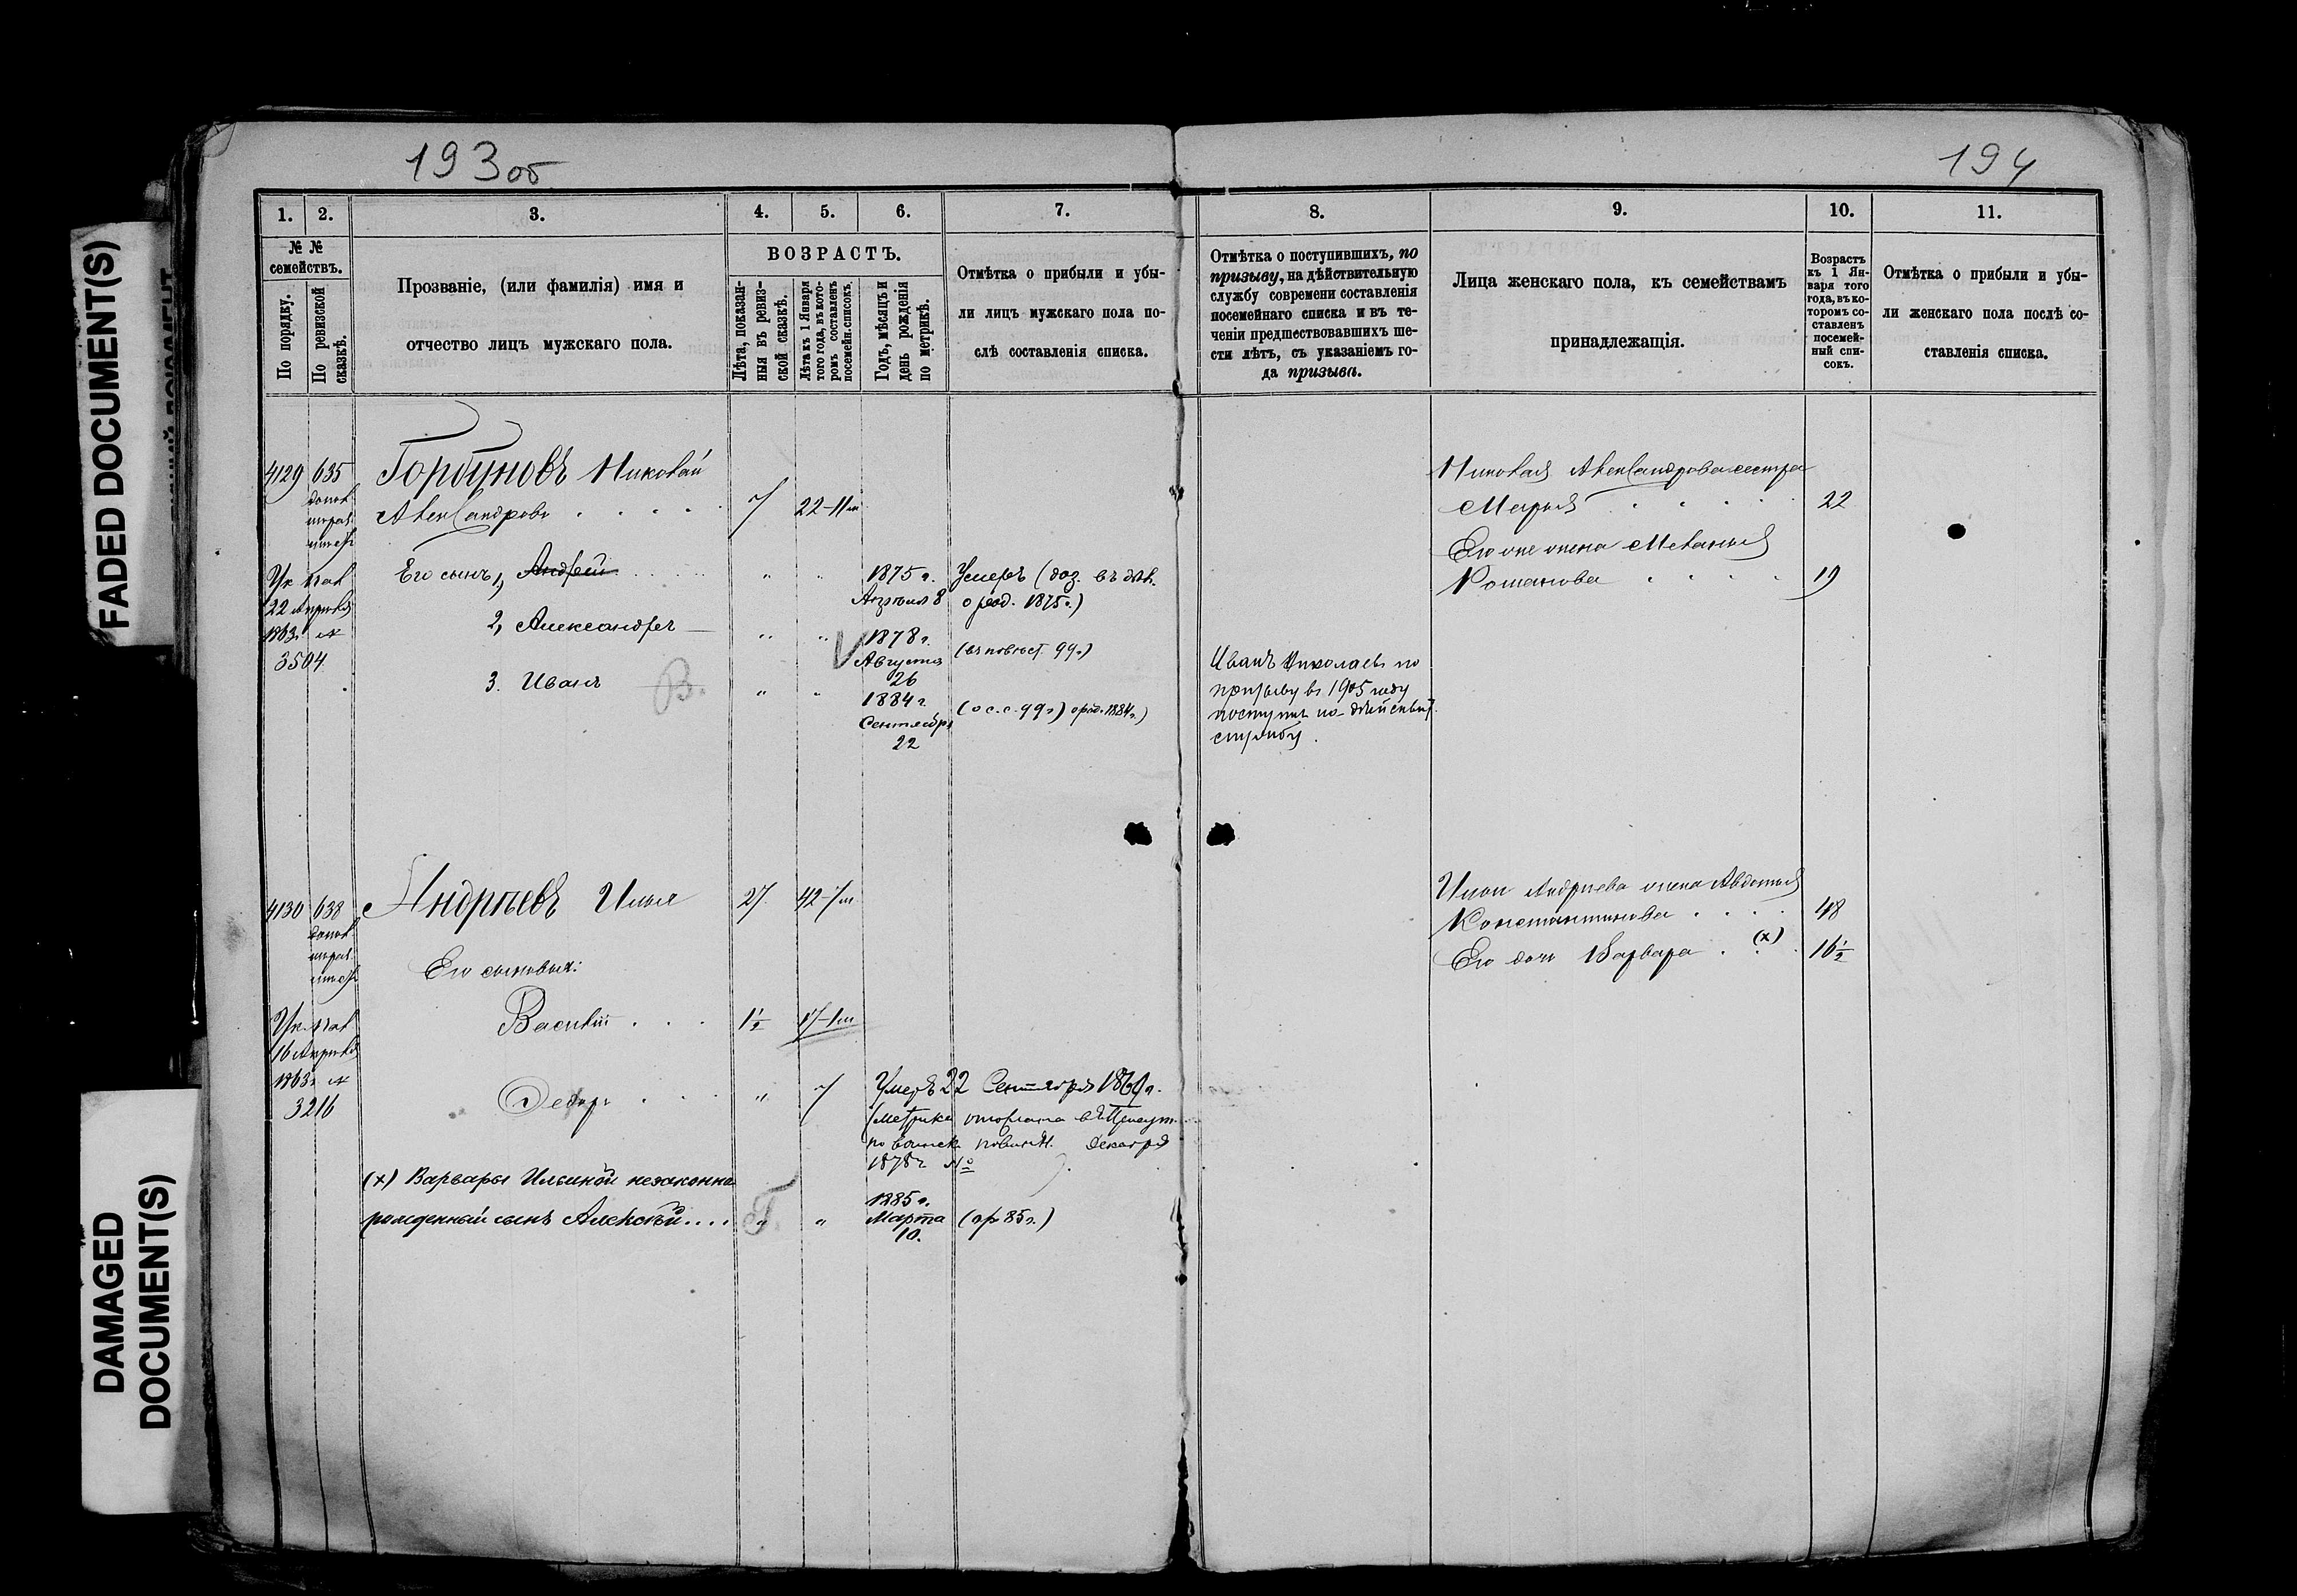 FADED DOCUMENT(S)
DAMAGED
DOCUMENT(S)
193 об
194
1.
2.
3.
4.
5.
6.
7.
8.
9.
10.
11.
№ №
семействъ.
По порядку.
По ревизской
сказкѣ.
Прозваніе, (или фамилія) имя и
отчество лицъ мужскаго пола.
ВОЗРАСТЪ.
Лѣта, показан-
ныя въ ревиз-
ской сказкѣ.
Лѣта къ 1 Января
того года, въ кото-
ромъ составленъ
посемейн. списокъ.
Годъ, мѣсяцъ и
день рожденія
по метрикѣ.
Отмѣтка о прибыли и убы-
ли лицъ мужскаго пола по-
слѣ составленія списка.
Отмѣтка о поступившихъ, по
призыву, на дѣйствительную
службу современи составленія
посемейнаго списка и въ те-
ченіи предшествовавшихъ ше-
сти лѣтъ, съ указаніемъ го-
да призыва.
Лица женскаго пола, къ семействамъ
принадлежащія.
Возрастъ
къ 1 Ян-
варя того
года, въ ко-
торомъ со-
ставленъ
посемей-
ный спи-
сокъ.
Отмѣтка о прибыли и убы-
ли женскаго пола послѣ со-
ставленія списка.
4129 635
Горбуновъ Николай
Александровъ 7 22-11м
Ук. пал.
22 Апрѣля
1863 г. №
3504.
Его сынъ 1, Андрей " " 1875 г. Апрѣля 8
Умеръ (въ
о род. 1875 г.)
2, Александръ " " 1878 г. Августа 26
3. Иванъ В. " " 1884 г. Сентября 22
(о с. с. 99 г.) о род. 1884 г.)
Иванъ Николаевъ по
призыву въ 1905 году
поступилъ на дѣйствит.
службу.
Николая Александрова сестра
Марья 22
Его же жена Меланья
Романова 19
4130 638
Андреевъ Илья 27 42-7м
Ук. пал.
16 Апрѣля
1863 г. №
3216
Его сыновья:
Василій 1½ 17-1м
Федоръ " 7
Умеръ 22 Сентября
(Метрика въ
по воинск. повин. Декабря
1878 г. №
(х) Варвары Ильиной незаконно
рожденный сынъ Алексѣй Г. " " 1885 г. Марта 10.
(ар 85 г.)
Ильи Андреева жена Авдотья
Константинова 48
Его дочь Варвара (х) 16½